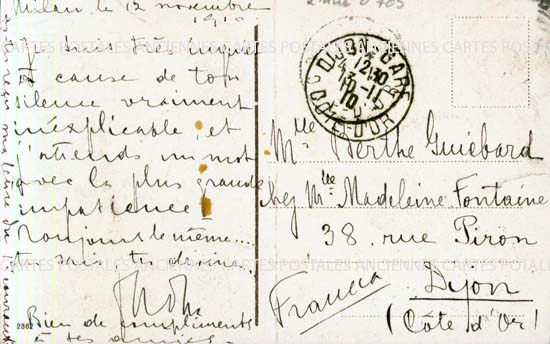 Milan le 12 novembre
1910
Je suis très inquiet
à cause de ton
silence vraiment
inexplicable, et
j'attends un mot
avec la plus grande
impatience !
Toujours le même....
et suis te devine.
Bien de compliments
à tes amies.
2862
DIJON GARE
12 30
13 - 11
10
COTE-D'OR
Mlle Berthe Guiébard
chez Mlle Madeleine Fontaine
38, rue Piron
Dijon
(Côte d'Or)
Francia
CARTES POSTALES ANCIENNES CARTES POSTALES ANCIENNES